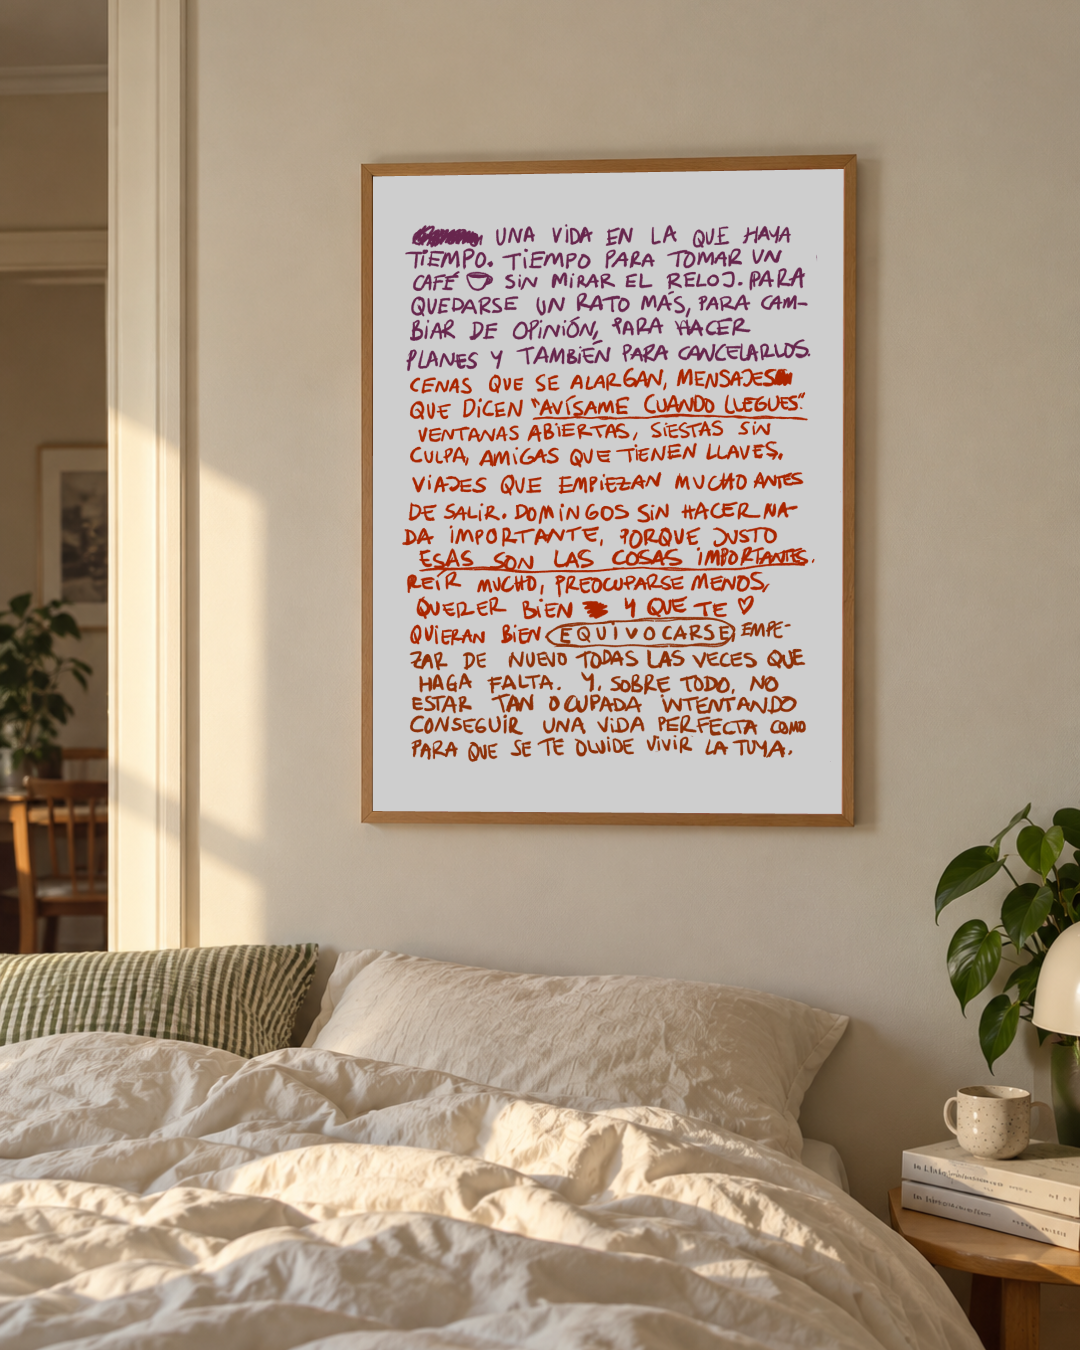 UNA VIDA EN LA QUE HAYA
TIEMPO. TIEMPO PARA TOMAR UN
CAFÉ SIN MIRAR EL RELOJ. PARA
QUEDARSE UN RATO MÁS, PARA CAM-
BIAR DE OPINIÓN, PARA HACER
PLANES Y TAMBIÉN PARA CANCELARLOS.
CENAS QUE SE ALARGAN, MENSAJES
QUE DICEN "AVÍSAME CUANDO LLEGUES."
VENTANAS ABIERTAS, SIESTAS SIN
CULPA, AMIGAS QUE TIENEN LLAVES,
VIAJES QUE EMPIEZAN MUCHO ANTES
DE SALIR. DOMINGOS SIN HACER NA-
DA IMPORTANTE, PORQUE JUSTO
ESAS SON LAS COSAS IMPORTANTES.
REÍR MUCHO, PREOCUPARSE MENOS,
QUERER BIEN Y QUE TE ♡
QUIERAN BIEN EQUIVOCARSE, EMPE-
ZAR DE NUEVO TODAS LAS VECES QUE
HAGA FALTA. Y, SOBRE TODO, NO
ESTAR TAN OCUPADA INTENTANDO
CONSEGUIR UNA VIDA PERFECTA COMO
PARA QUE SE TE OLVIDE VIVIR LA TUYA.